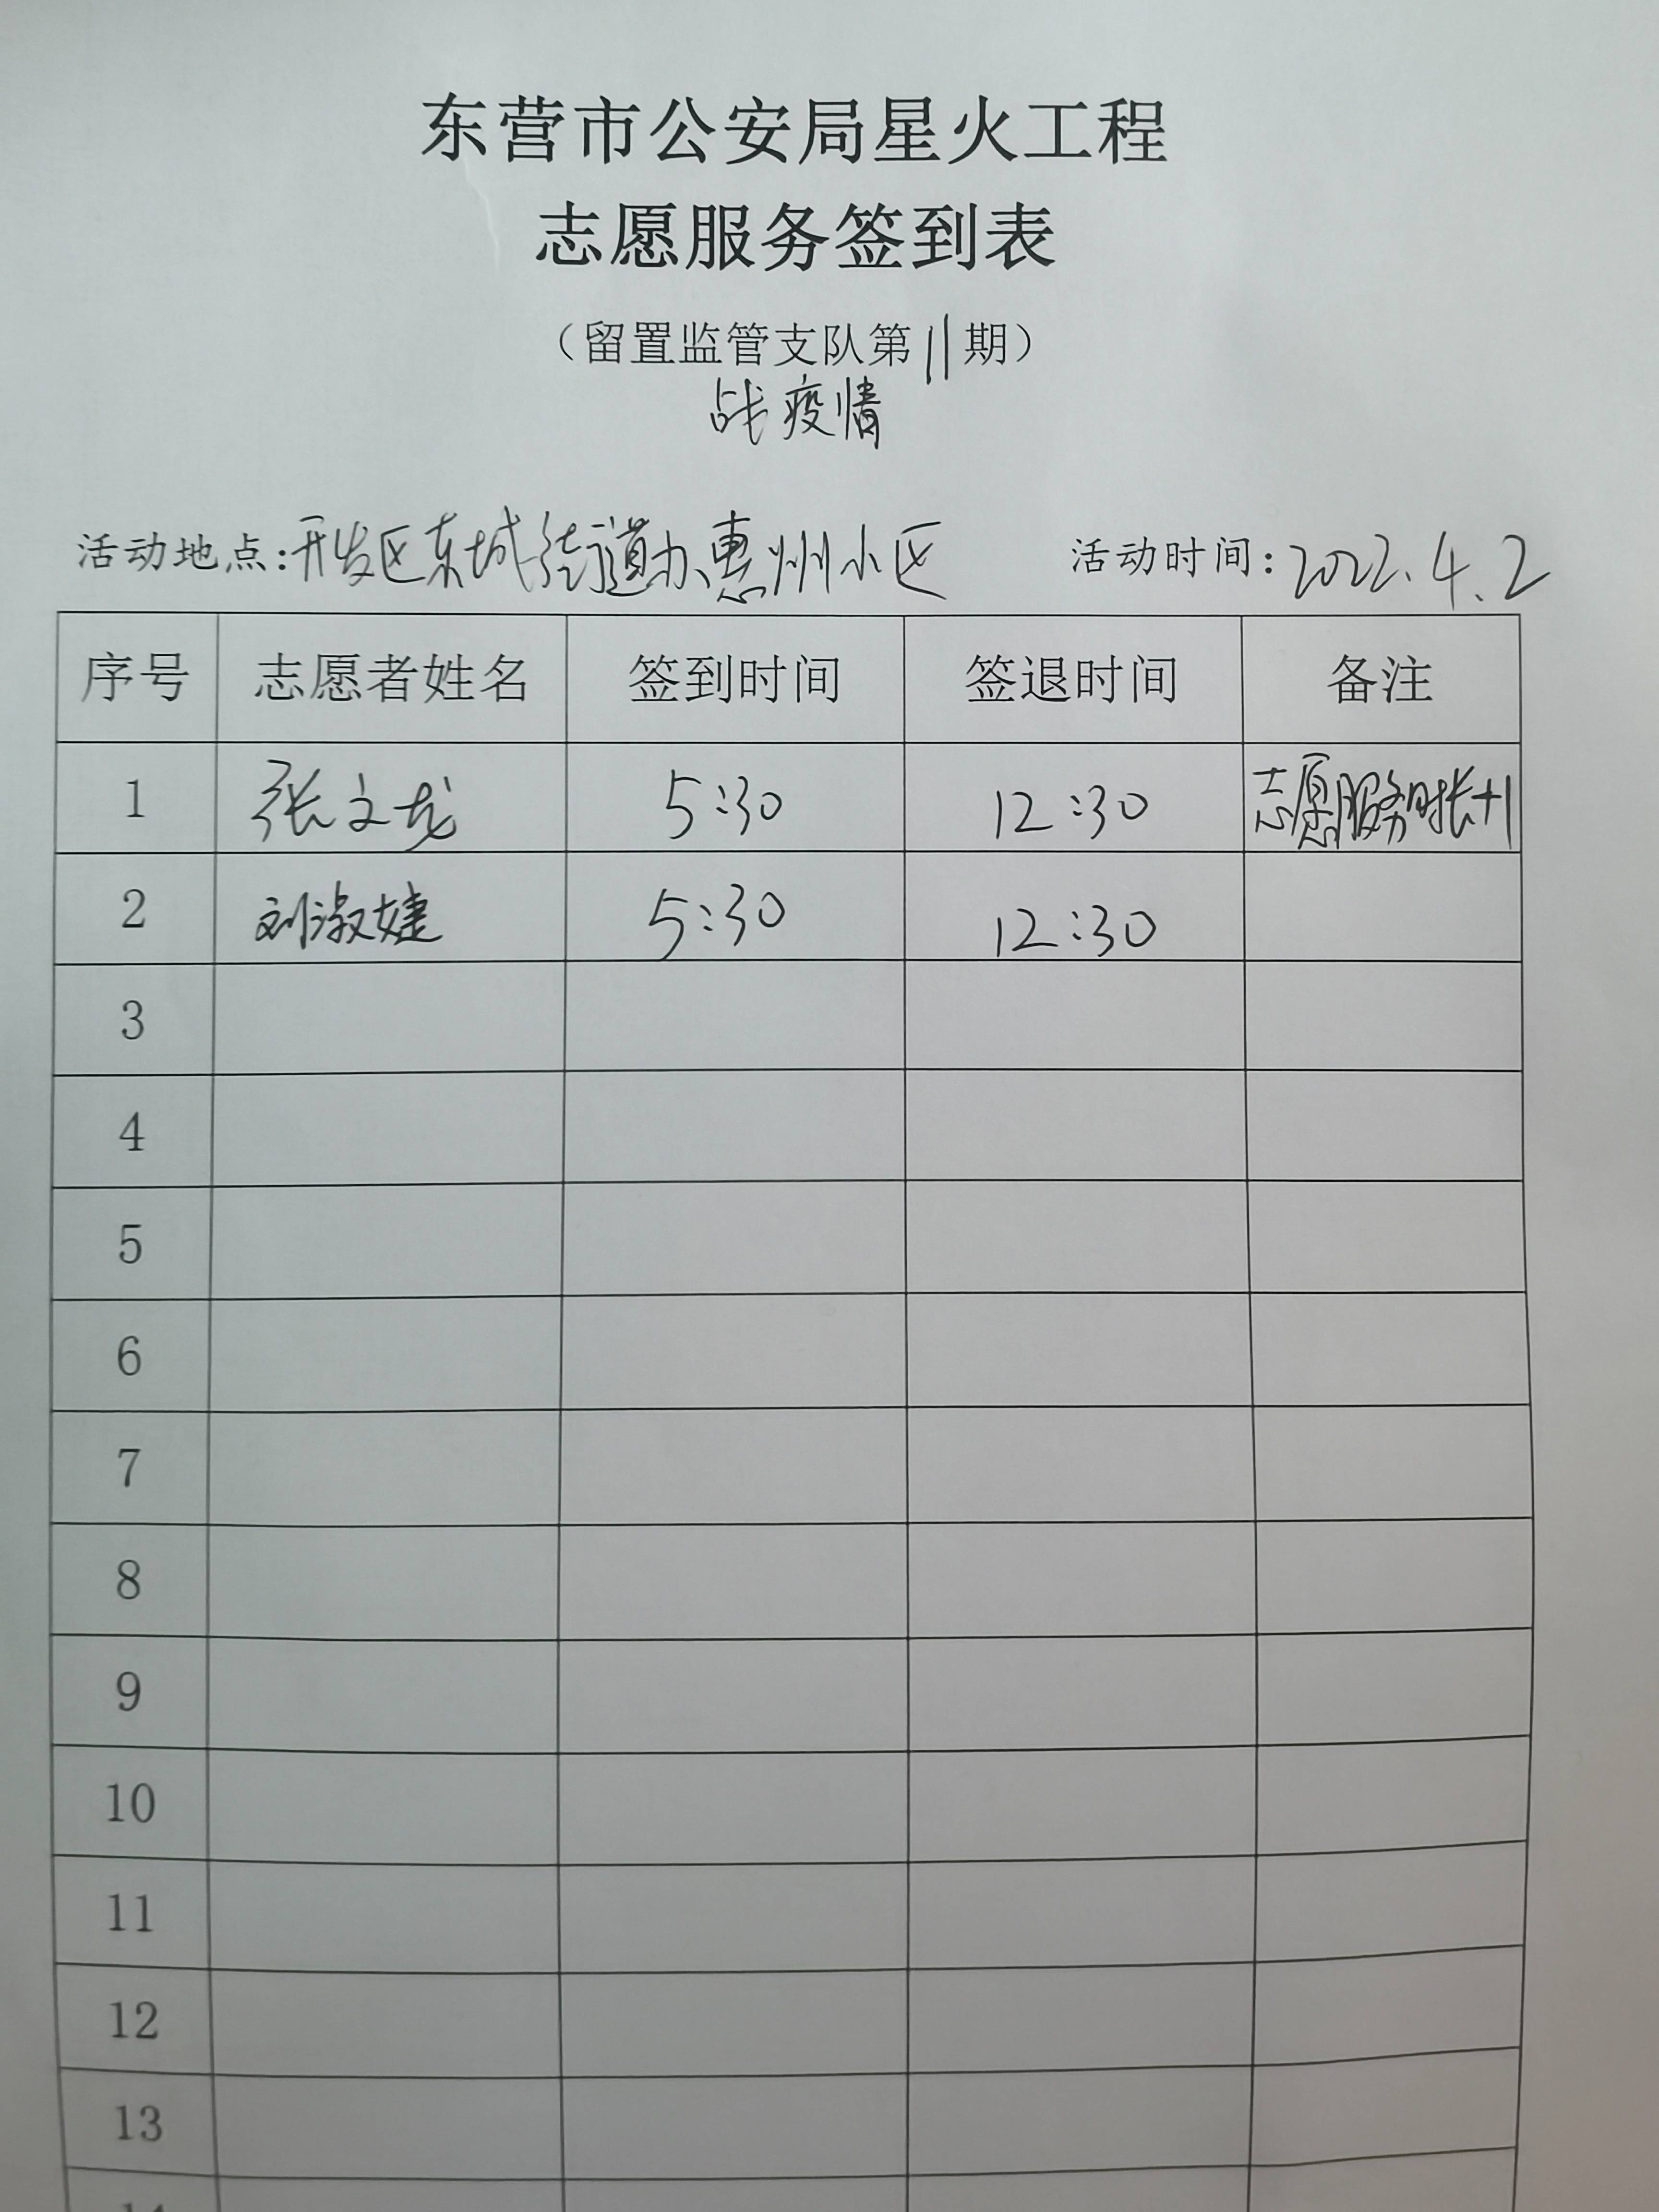 东营市公安局星火工程
志愿服务签到表
（留置监管支队第11期）
战疫情
活动地点:开发区东城街道办惠州小区 活动时间:2022.4.2
序号 志愿者姓名 签到时间 签退时间 备注
1 张文龙 5:30 12:30 志愿服务时长+1
2 刘淑婕 5:30 12:30
3
4
5
6
7
8
9
10
11
12
13
14